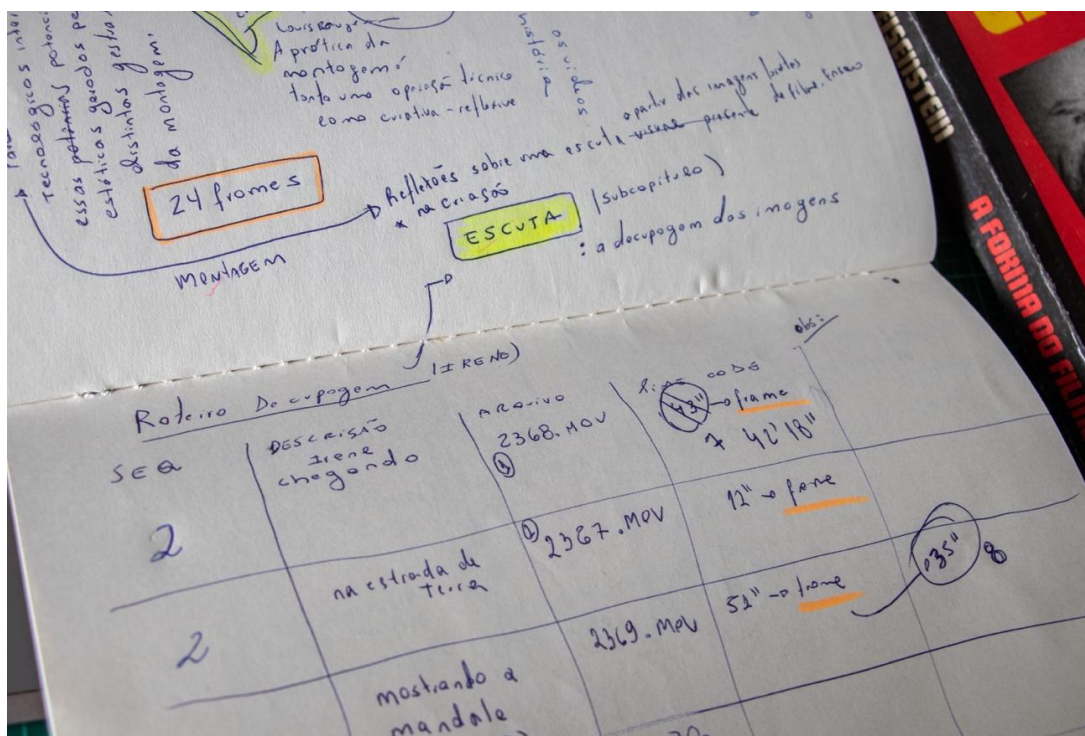 tecnológicos inter
essas potências potenci
estéticas gerados pe
distintas gestua
da montagem.
A prática da
montagem é
tanto uma operação técnico
como criativa-reflexiva
história
os vídeos
24 frames
MONTAGEM
Reflexões sobre uma escuta visual presente
a partir das imagens brutas
na criação
ESCUTA (subcapítulo)
: a decupagem das imagens
Roteiro Decupagem (IRENE)
SEQ
DESCRIÇÃO
ARQUIVO
obs:
Irene
chegando
2368.MOV
43" → frame
7 42'18"
2
na estrada de
terra
2367.MOV
12" → frame
2
mostrando a
mandala
2369.MOV
51" → frame
035" 8
EISENSTEIN
A FORMA DO FILM